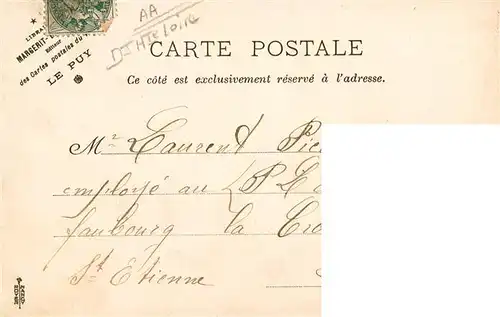 AA
Hte Loire
LIBRAI
MARGERIT-
des Cartes postales du
LE PUY
CARTE POSTALE
Ce côté est exclusivement réservé à l'adresse.
Mr Laurent
employé au
faubourg la
St Etienne